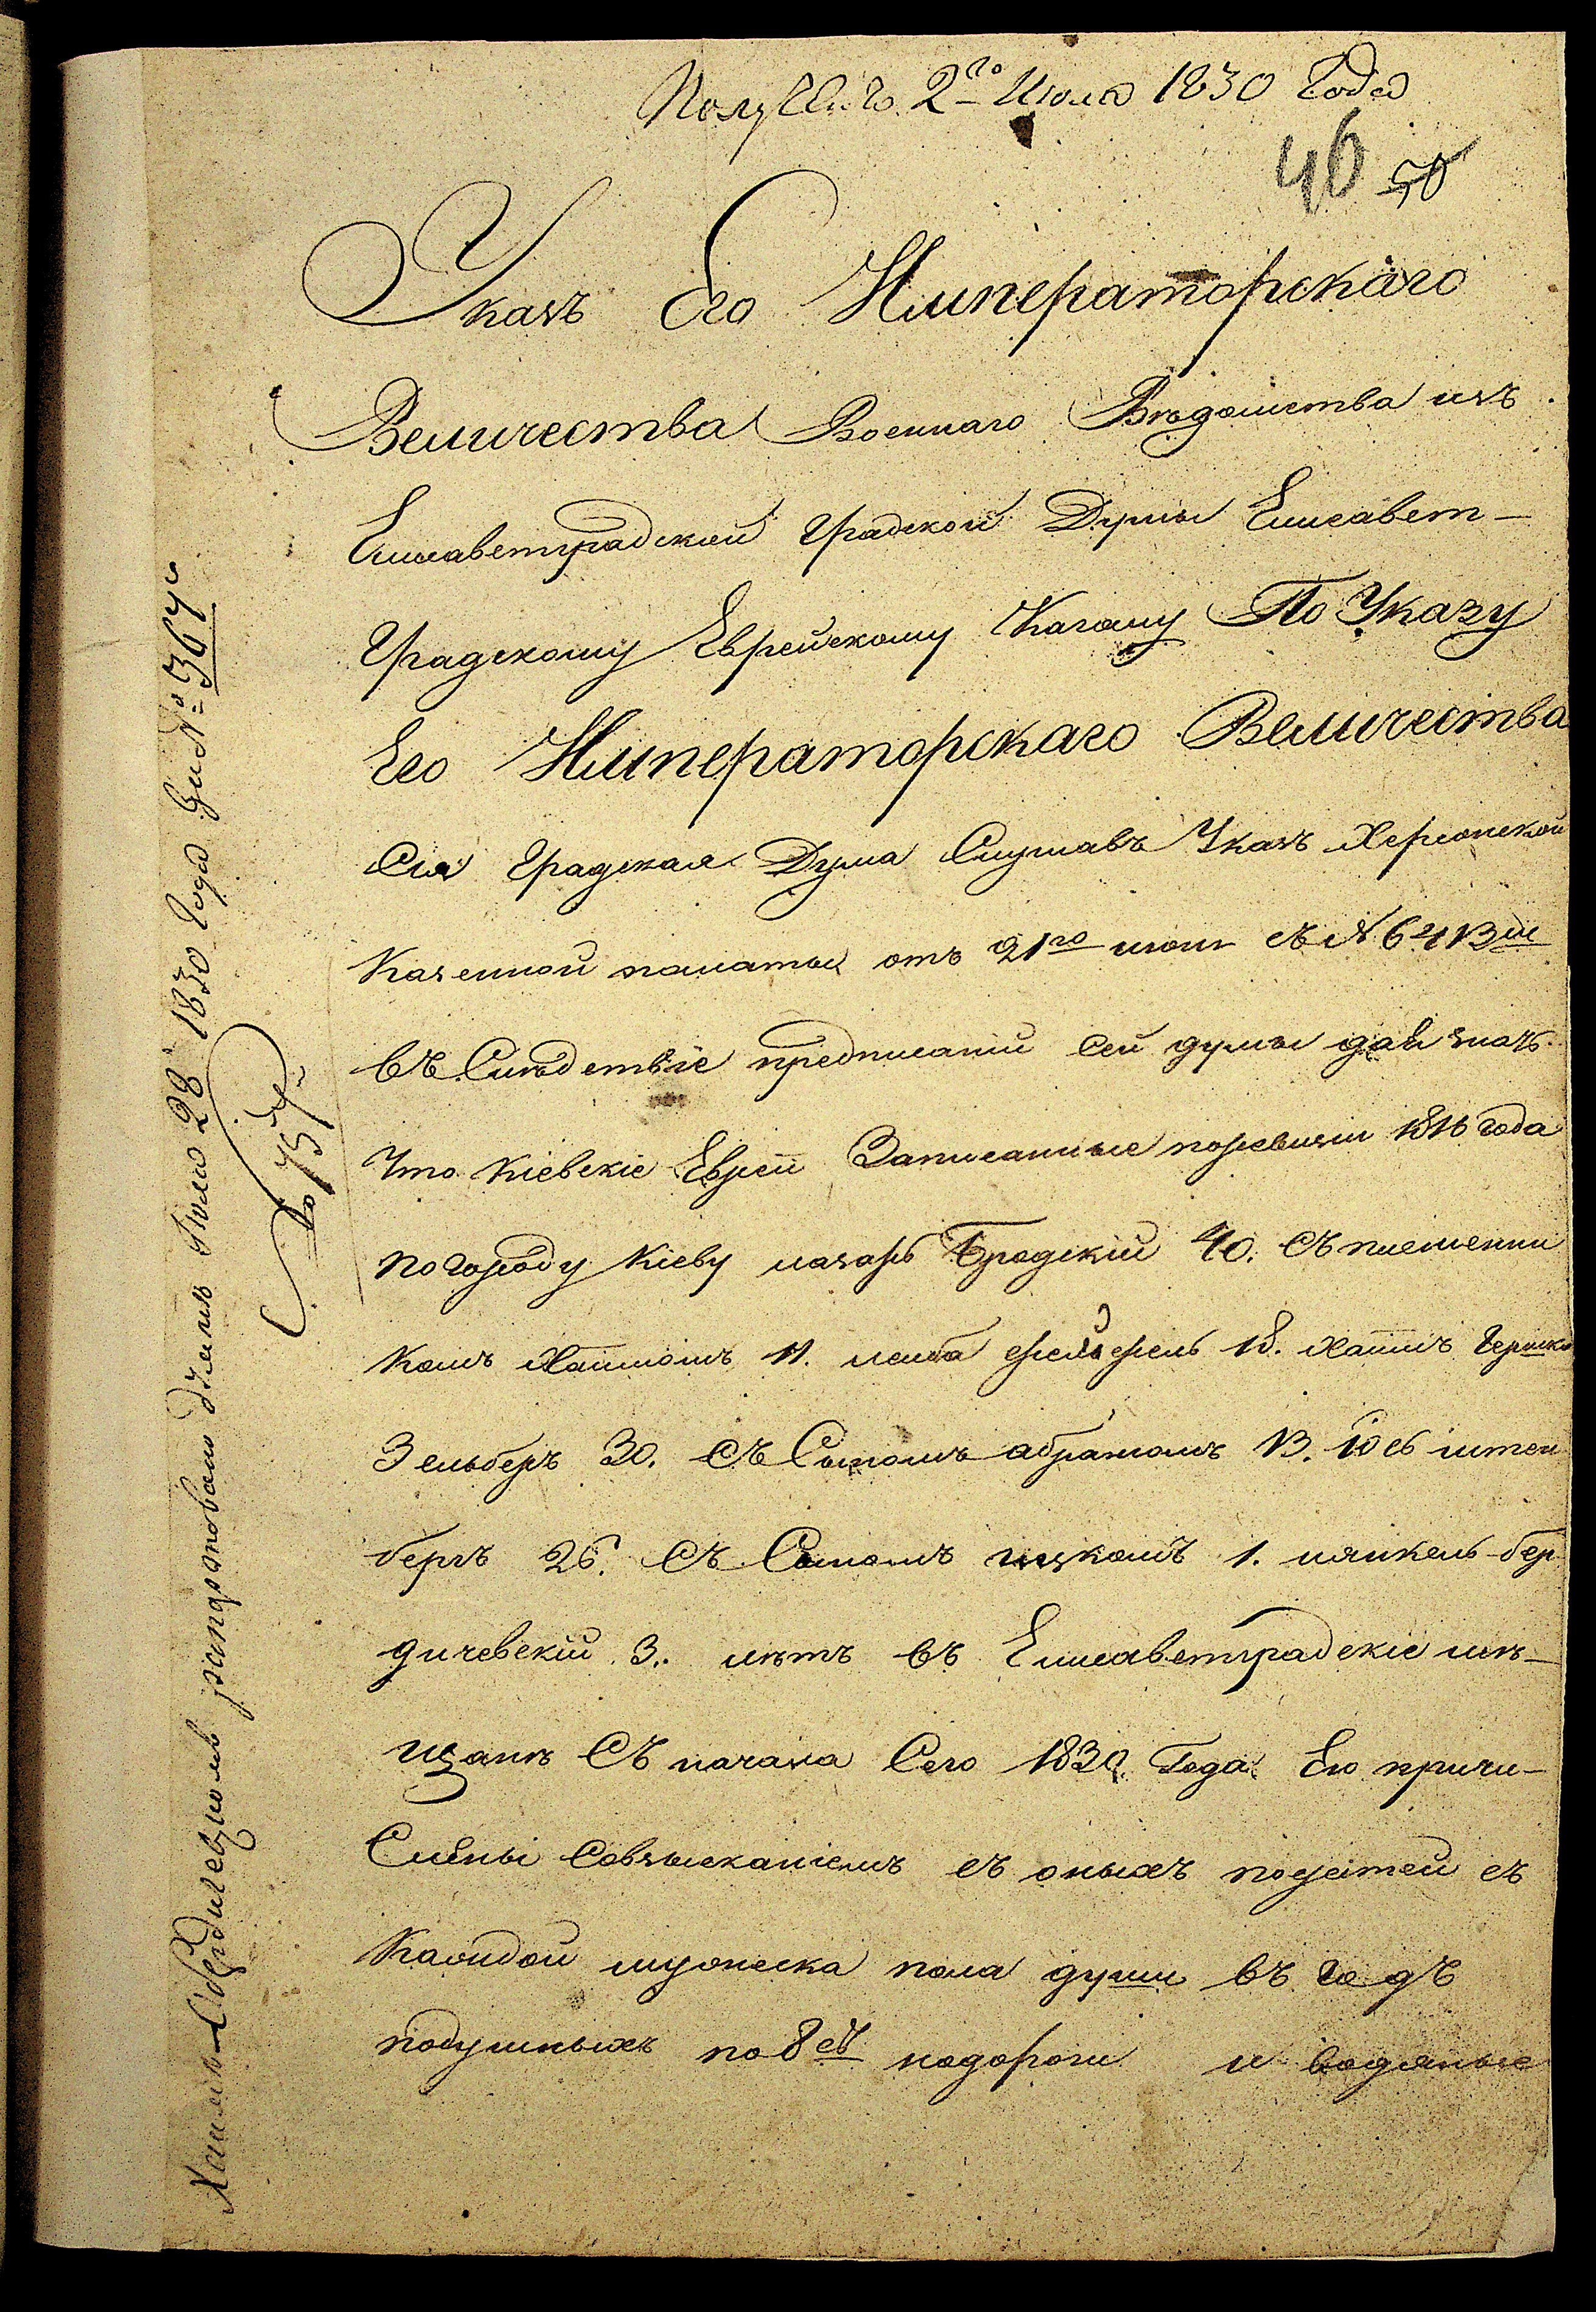 Получено 2го Июля 1830 Года
46 50
Указъ Его Императорскаго
Величества Военнаго Вѣдомства изъ
Елисаветградской Градской Думы Елисавет-
Градскому Еврейскому Кагалу По Указу
Его Императорскаго Величества
Сия Градская Дума Слушавъ Указъ Херсонской
Казенной палаты отъ 21го июня съ № 6413м
въ Слѣдствіе предписаніи сей думы дав знать
Что Кіевскіе Евреи Записанные поревизіи 1816 года
по городу Кіеву лазарь Бродскій 40. Съ племенни
комъ Хаимомъ 11. лейба 18. Хаимъ Гершко
Зельберъ 30. Съ Сыномъ абрамомъ 13. іось штеи
бергъ 26. Съ Сыномъ ицкомъ 1. иянкель бер
дичевскій 3. лѣтъ въ Елисаветградскіе мѣ-
щане Съ начала Сего 1830 Года Ею причи-
Слены Совзысканіемъ съ оныхъ податей съ
Каждой мужеска пола души въ годъ
подушныхъ по 8 надороги и водяные
Хаимъ Бердичевскомъ 28 1830 Года № 367
№ 757